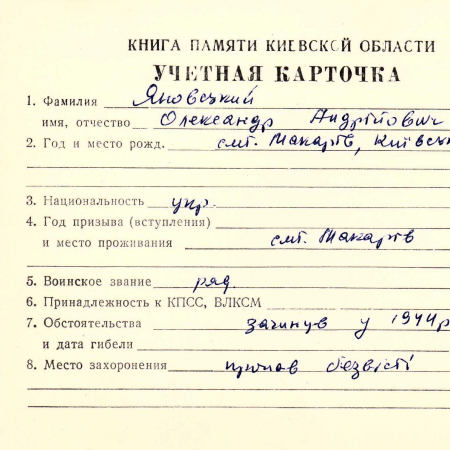 КНИГА ПАМЯТИ КИЕВСКОЙ ОБЛАСТИ
УЧЕТНАЯ КАРТОЧКА
1. Фамилия Яновський
имя, отчество Олександр Андрійович
2. Год и место рожд. смт. Макарів, Київськ
3. Национальность укр.
4. Год призыва (вступления)
и место проживания смт. Макарів
5. Воинское звание ряд.
6. Принадлежность к КПСС, ВЛКСМ
7. Обстоятельства загинув у 1944р
и дата гибели
8. Место захоронения пропав безвісті